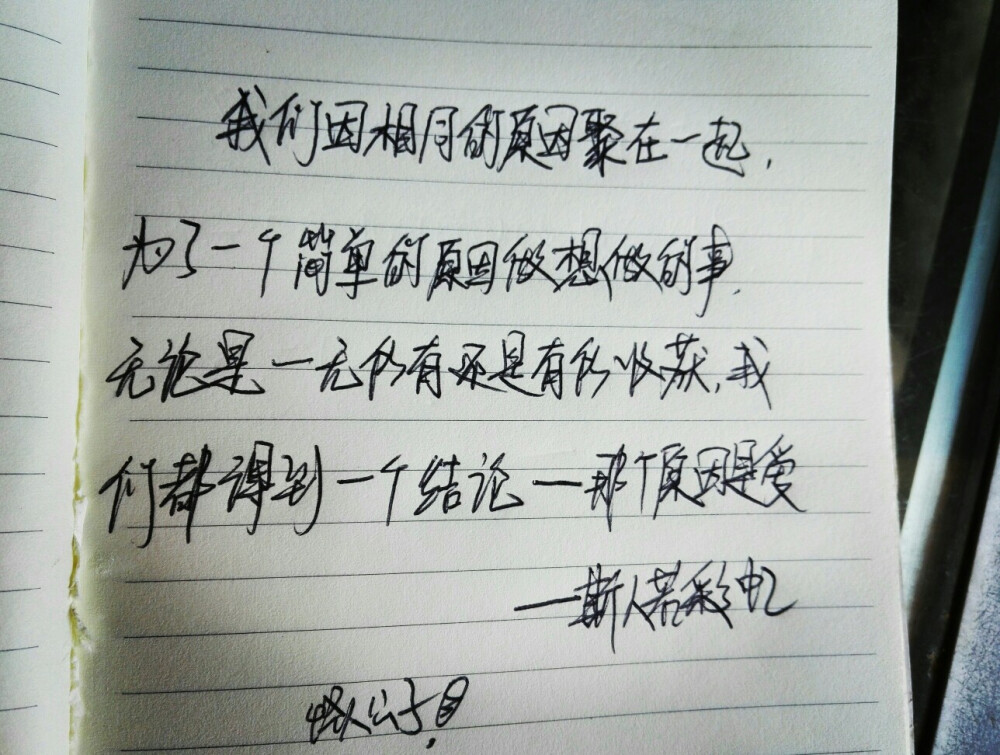 我们因相同的原因聚在一起,
为了一个简单的原因做想做的事,
无论是一无所有还是有所收获,我
们都得到一个结论—那个原因是爱
—斯人若彩虹
公子